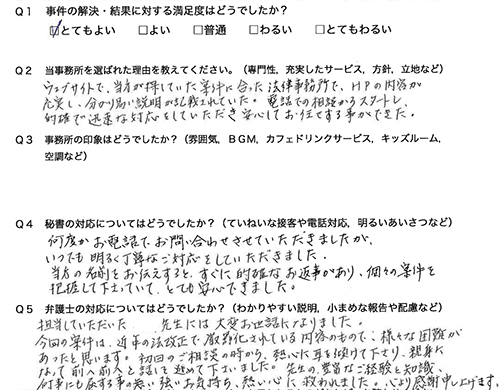 Q1 事件の解決・結果に対する満足度はどうでしたか？
☑とてもよい □よい □普通 □わるい □とてもわるい
Q2 当事務所を選ばれた理由を教えてください。（専門性，充実したサービス，方針，立地など）
ウェブサイトで、当方が探していた案件に合った法律事務所で、HPの内容が
充実し、分かり易い説明が記載されていた。電話での相談からスタートし、
的確で迅速な対応をしていただき安心してお任せする事ができた。
Q3 事務所の印象はどうでしたか？（雰囲気，ＢＧＭ，カフェドリンクサービス，キッズルーム，
空調など）
Q4 秘書の対応についてはどうでしたか？（ていねいな接客や電話対応，明るいあいさつなど）
何度かお電話でお問い合わせさせていただきましたが、
いつでも明るく丁寧なご対応をしていただきました。
当方の名前をお伝えすると、すぐに的確なお返事があり、個々の案件を
把握して下さっていて、とても安心できました。
Q5 弁護士の対応についてはどうでしたか？（わかりやすい説明，小まめな報告や配慮など）
担当していただいた 先生には大変お世話になりました。
今回の案件は、近年の法改正で厳罰化されている内容のもので、様々な困難が
あったと思います。初回のご相談の時から、熱心に耳を傾けて下さり、親身に
なって前へ前へと話を進めて下さいました。先生の、豊富なご経験と知識、
何事にも屈する事の無い強いお気持ち、熱い心に救われました。 感謝申し上げます。